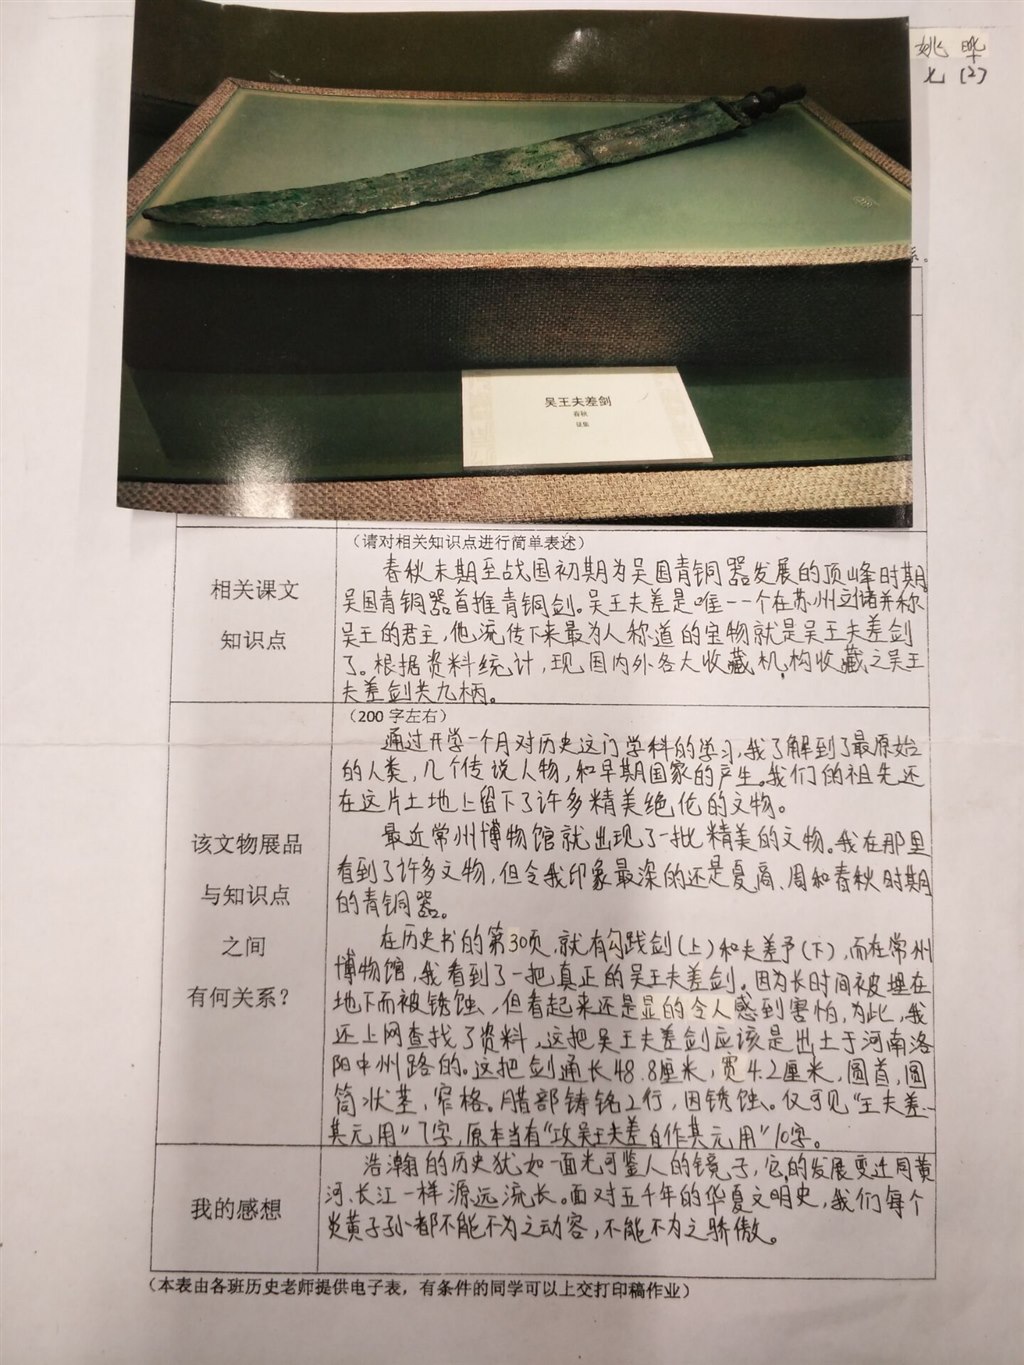 姚晔
七(2)
系。
吴王夫差剑
春秋
征集
(请对相关知识点进行简单表述)
相关课文
知识点
春秋末期至战国初期为吴国青铜器发展的顶峰时期。
吴国青铜器首推青铜剑。吴王夫差是唯一一个在苏州立储并称
吴王的君主,他流传下来最为人称道的宝物就是吴王夫差剑
了。根据资料统计,现国内外各大收藏机构收藏之吴王
夫差剑共九柄。
(200字左右)
该文物展品
与知识点
之间
有何关系?
通过开学一个月对历史这门学科的学习,我了解到了最原始
的人类,几个传说人物,和早期国家的产生。我们的祖先还
在这片土地上留下了许多精美绝伦的文物。
最近常州博物馆就出现了一批精美的文物。我在那里
看到了许多文物,但令我印象最深的还是夏商、周和春秋时期
的青铜器。
在历史书的第30页,就有勾践剑(上)和夫差予(下),而在常州
博物馆,我看到了一把真正的吴王夫差剑。因为长时间被埋在
地下而被锈蚀,但看起来还是显的令人感到害怕,为此,我
还上网查找了资料,这把吴王夫差剑应该是出土于河南洛
阳中州路的。这把剑通长48.8厘米,宽4.2厘米,圆首,圆
筒状茎,窄格。腊部铸铭2行,因锈蚀。仅可见“王夫差…
其元用”7字,原本当有“攻吴王夫差自作其元用”10字。
我的感想
浩瀚的历史犹如一面光可鉴人的镜子,它的发展变迁同黄
河、长江一样源远流长。面对五千年的华夏文明史,我们每个
炎黄子孙都不能不为之动容,不能不为之骄傲。
(本表由各班历史老师提供电子表,有条件的同学可以上交打印稿作业)